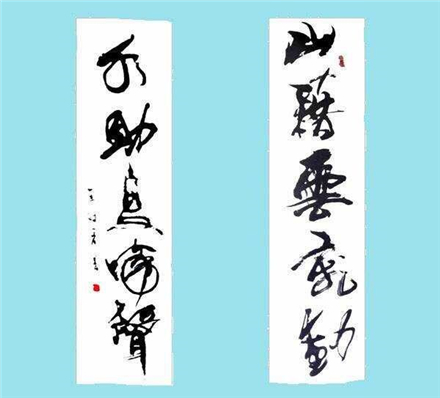 山藉雲飛動
水助鳥啼聲